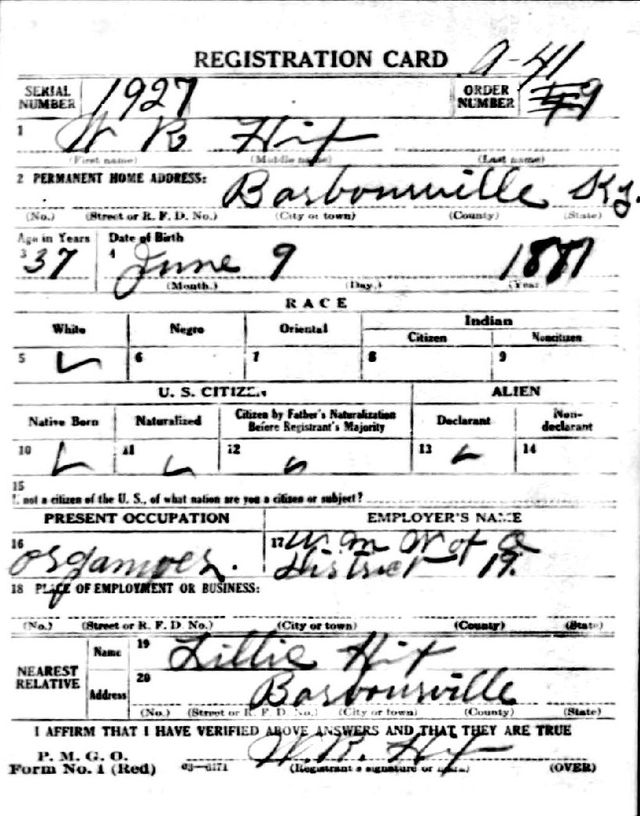 REGISTRATION CARD A-41
SERIAL NUMBER 1927 ORDER NUMBER 9
1 W R Hix
(First name) (Middle name) (Last name)
2 PERMANENT HOME ADDRESS: Barbourville Ky.
(No.) (Street or R. F. D. No.) (City or town) (County) (State)
Age in Years Date of Birth
3 37 4 June 9 1881
(Month.) (Day.) (Year.
RACE
White Negro Oriental Indian
Citizen Noncitizen
5 6 7 8 9
U. S. CITIZEN ALIEN
Native Born Naturalized Citizen by Father's Naturalization Before Registrant's Majority Declarant Non-declarant
10 11 12 13 14
15
If not a citizen of the U. S., of what nation are you a citizen or subject?
PRESENT OCCUPATION EMPLOYER'S NAME
16 organizer. 17 U. M. W of A
District 19.
18 PLACE OF EMPLOYMENT OR BUSINESS:
(No.) (Street or R. F. D. No.) (City or town) (County) (State)
NEAREST RELATIVE
Name 19 Lillie Hix
Address 20 Barbourville
(No.) (Street or R. F. D. No.) (City or town) (County) (State)
I AFFIRM THAT I HAVE VERIFIED ABOVE ANSWERS AND THAT THEY ARE TRUE
P. M. G. O.
Form No. 1 (Red) 03—6171 W. R. Hix
(Registrant's signature or mark) (OVER)